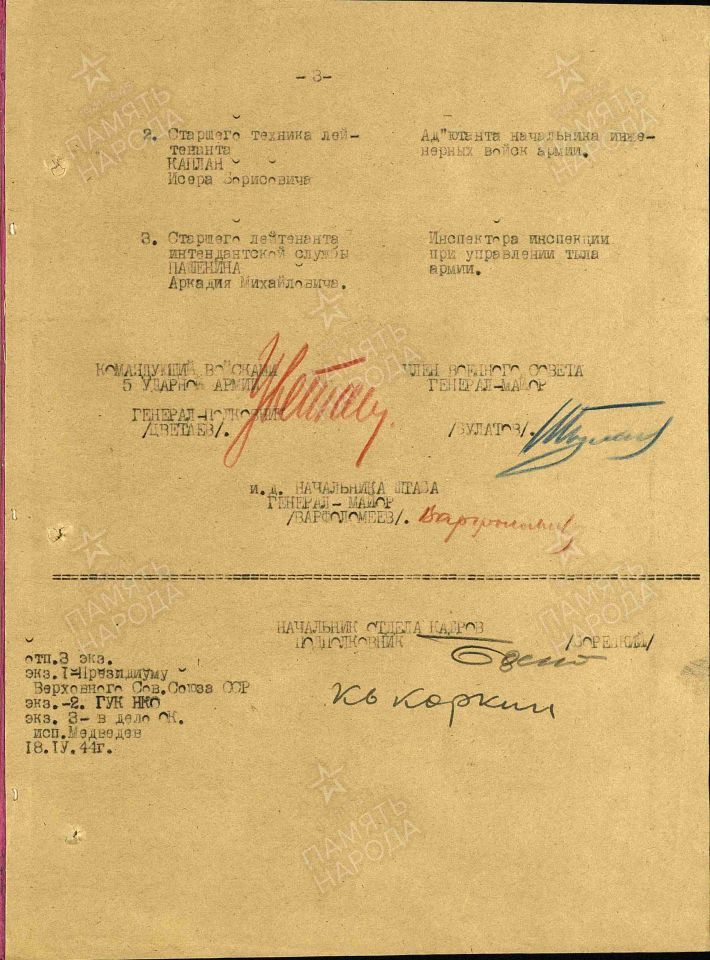 -3-
2. Старшего техника лей-
тенанта
КАПЛАН
Исера Борисовича
Ад"ютанта начальника инже-
нерных войск армии.
3. Старшего лейтенанта
интендантской службы
ПАШЕНИНА
Аркадия Михайловича.
Инспектора инспекции
при управлении тыла
армии.
КОМАНДУЮЩИЙ ВОЙСКАМИ
5 УДАРНОЙ АРМИИ
ГЕНЕРАЛ-ПОЛКОВНИК
/ЦВЕТАЕВ/.
ЧЛЕН ВОЕННОГО СОВЕТА
ГЕНЕРАЛ-МАЙОР
/БУЛАТОВ/.
и.д. НАЧАЛЬНИКА ШТАБА
ГЕНЕРАЛ- МАЙОР
/ВАРФОЛОМЕЕВ/.
НАЧАЛЬНИК ОТДЕЛА КАДРОВ
ПОДПОЛКОВНИК /БОРЕЦКИЙ/
отп.3 экз.
экз.I-Президиуму
Верховного Сов.Союза ССР
экз.-2. ГУК НКО
экз. 3- в дело ОК.
исп.Медведев
18.IV.44г.
ПАМЯТЬ
НАРОДА
ПАМЯТЬ
НАРОДА
ПАМЯТЬ
НАРОДА
ПАМЯТЬ
НАРОДА
ПАМЯТЬ
НАРОДА
ПАМЯТЬ
НАРОДА